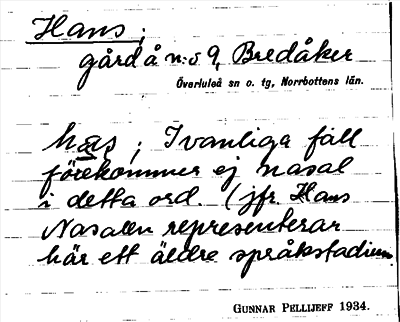 Hans;
gård å n:o 9, Bredåker
Överluleå sn o. tg, Norrbottens län.
has; I vanliga fall
förekommer ej nasal
i detta ord. (jfr Hans
Nasalen representerar
här ett äldre språkstadium
GUNNAR PELLIJEFF 1934.